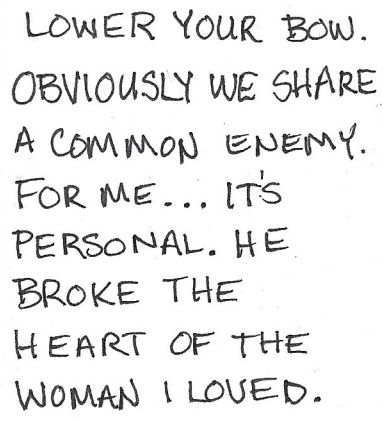 LOWER YOUR BOW.
OBVIOUSLY WE SHARE
A COMMON ENEMY.
FOR ME... IT'S
PERSONAL. HE
BROKE THE
HEART OF THE
WOMAN I LOVED.